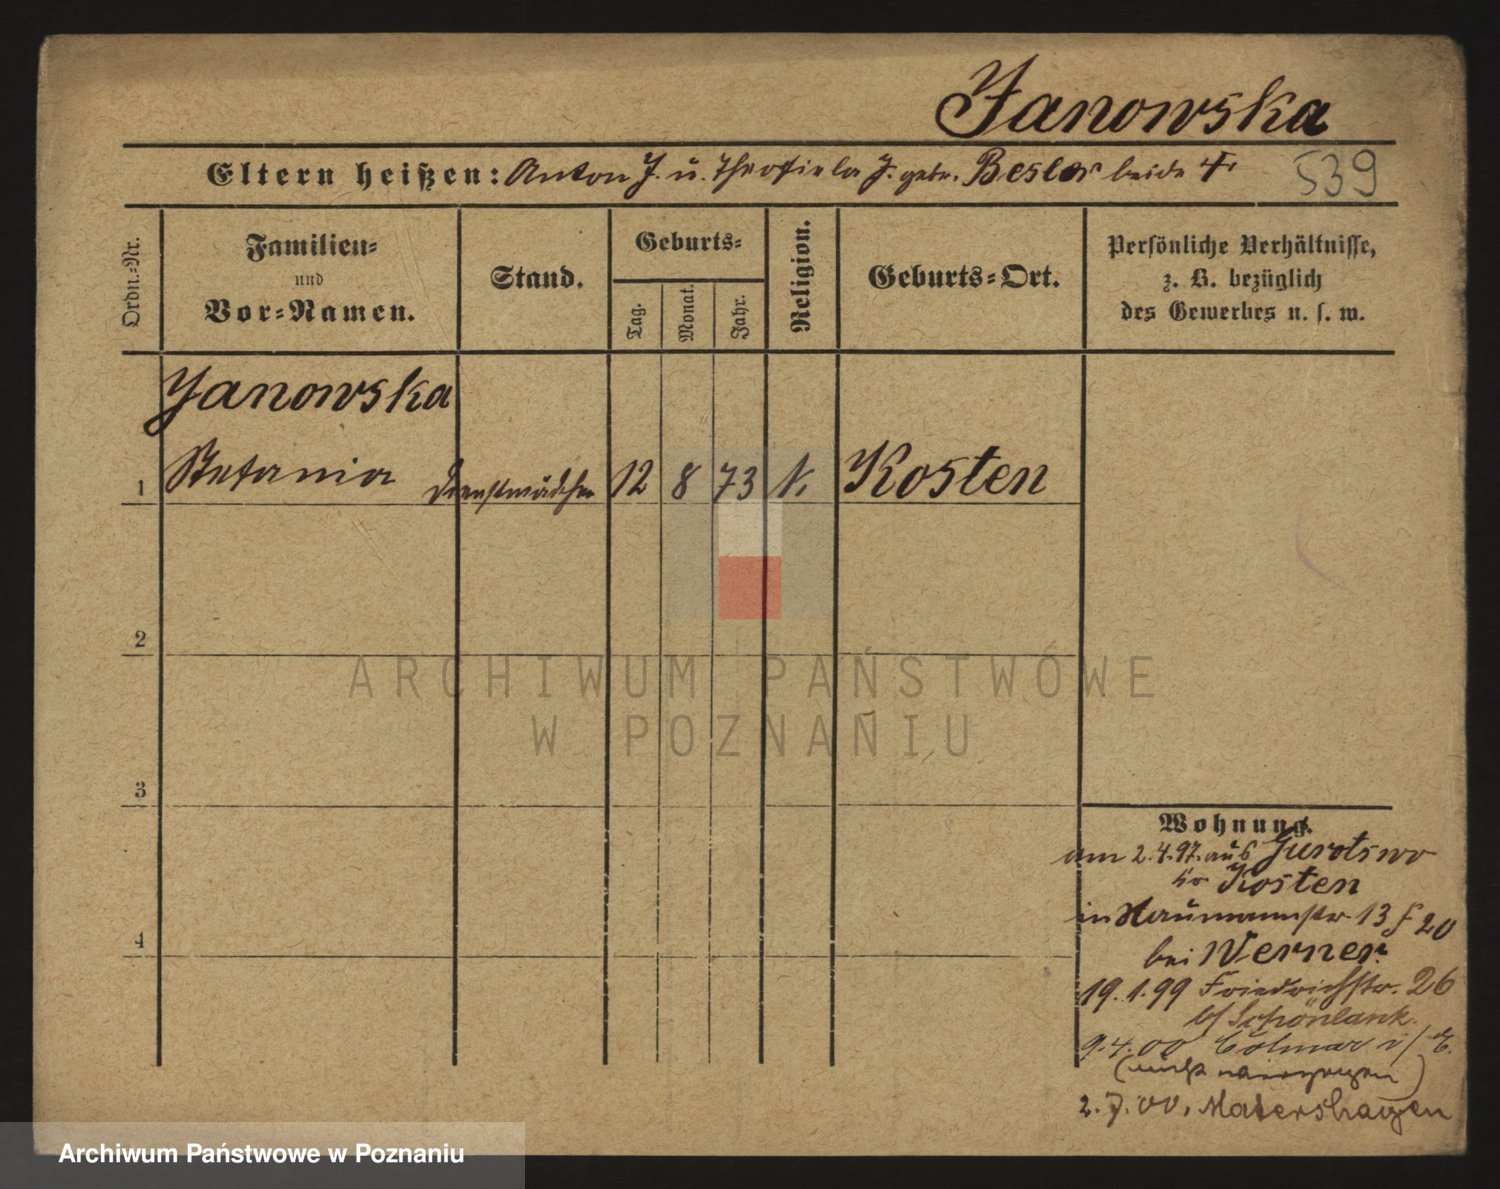 Janowska
Eltern heißen: Anton J. u. Theofiela J. geb. Besler beide †
539
Ordn.-Nr.
Familien-
und
Vor-Namen.
Stand.
Geburts-
Tag.
Monat.
Jahr.
Religion.
Geburts-Ort.
Persönliche Verhältnisse,
z. B. bezüglich
des Gewerbes u. s. w.
Janowska
1 Stefania Dienstmädchen 12 8 73 k. Kosten
2
3
4
Wohnung.
am 2.4.97. aus
Kr Kosten
in Naumannstr 13 20
bei Werner.
19.1.99 Friedrichstr. 26
b/ Schönlank.
9.4.00 Colmar i/
(nicht
2.7.00,
ARCHIWUM PAŃSTWOWE
W POZNANIU
Archiwum Państwowe w Poznaniu